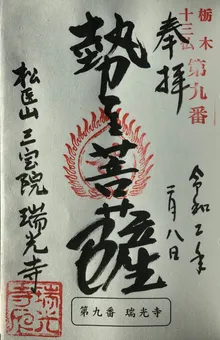 栃木
十三仏
第九番
奉拝
令和二年
二月八日
勢至菩薩
松臣山三宝院瑞光寺
瑞光
寺印
第九番 瑞光寺